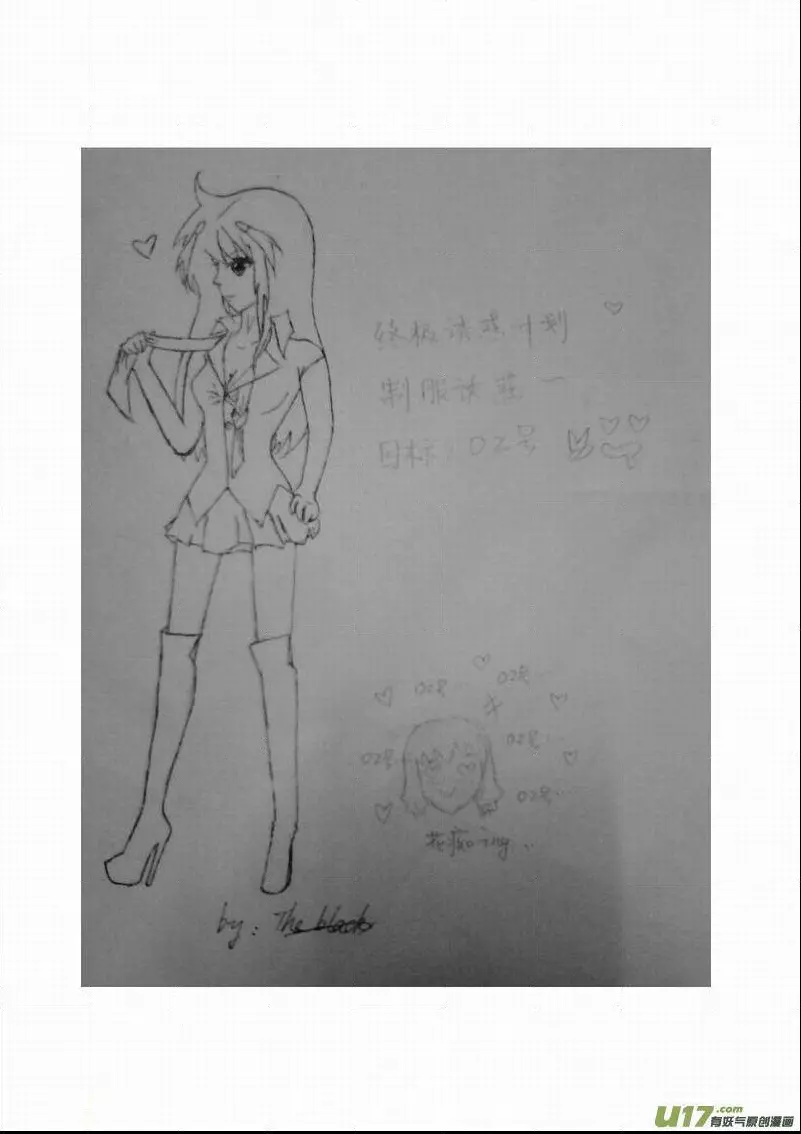 终极诱惑计划
制服诱惑一
目标：02号
02号
02号…
02号…
02号…
02号…
花痴ing…
by: The black
U17.com
有妖气原创漫画